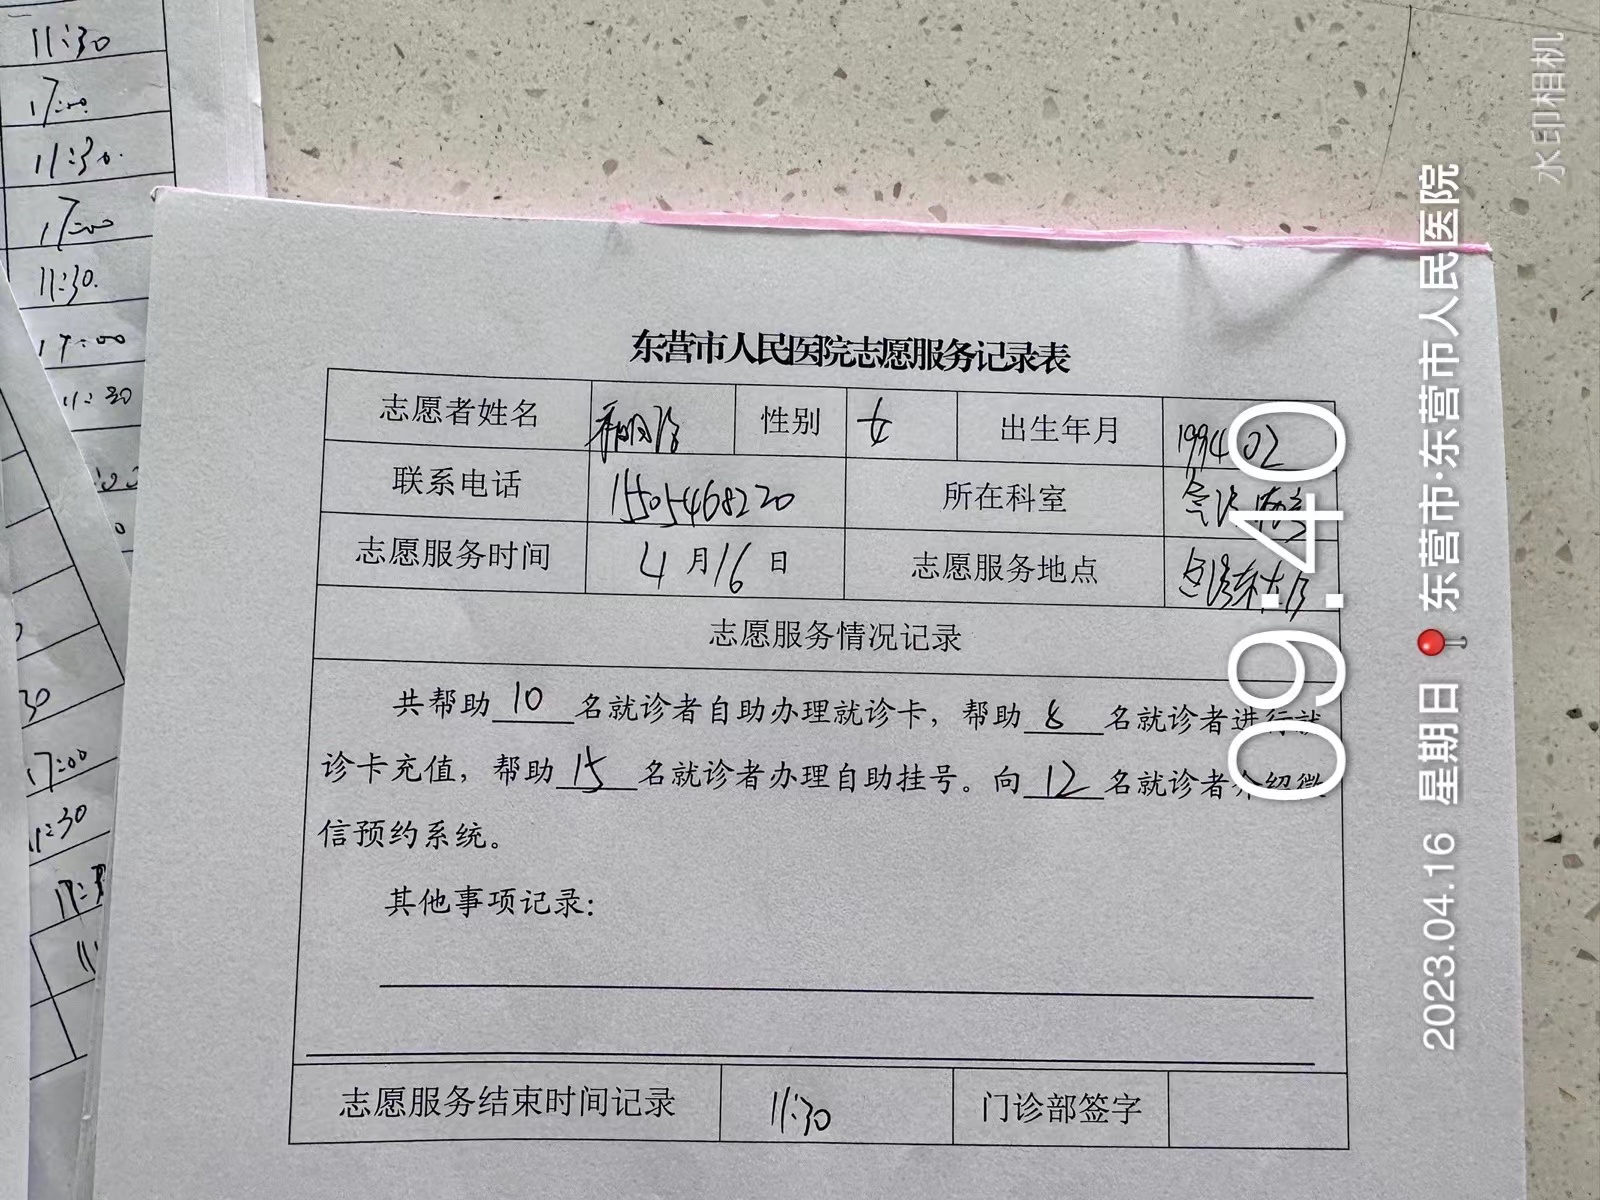 11:30
17:00
11:30.
17:00
11:30.
17:00
11:30
17:00
11:30
东营市人民医院志愿服务记录表
志愿者姓名 性别 女 出生年月 1994.02
联系电话 15505468220 所在科室
志愿服务时间 4月16日 志愿服务地点 门诊大厅
志愿服务情况记录
共帮助10名就诊者自助办理就诊卡，帮助8名就诊者进行就
诊卡充值，帮助15名就诊者办理自助挂号。向12名就诊者介绍微
信预约系统。
其他事项记录：
志愿服务结束时间记录 11:30 门诊部签字
09:40
2023.04.16 星期日 东营市·东营市人民医院
水印相机